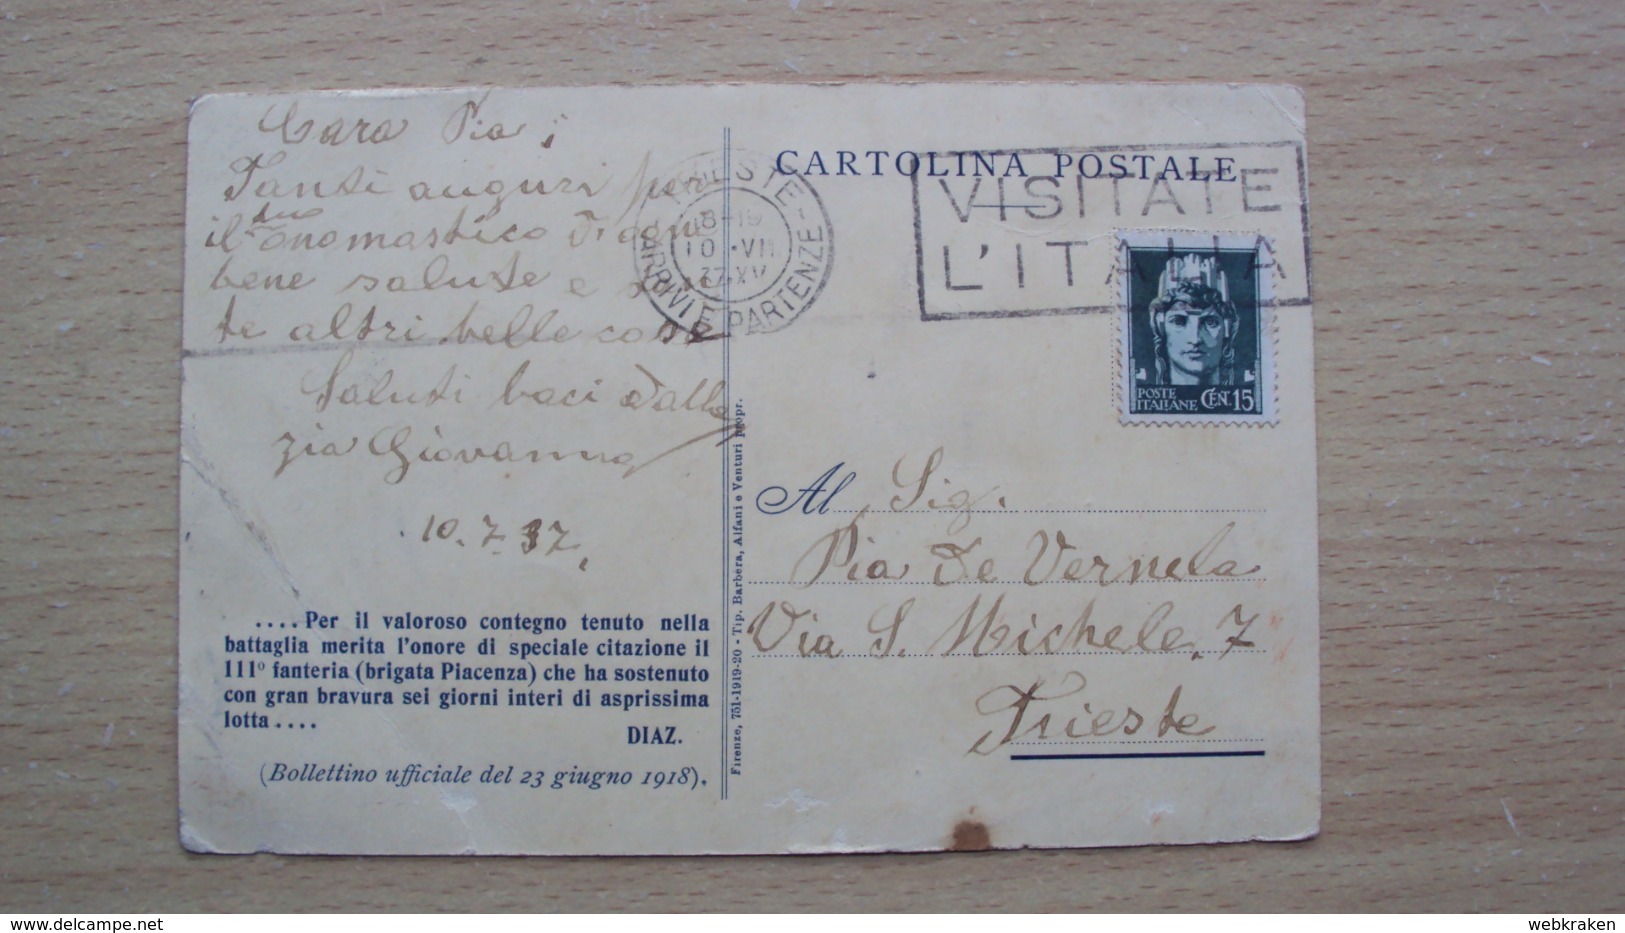 Cara Pia;
Tanti auguri per
il tuo onomastico d'ogni
bene salute e
te altri belle cose
Saluti baci dalla
zia Giovanna
10.7.37,
....Per il valoroso contegno tenuto nella
battaglia merita l'onore di speciale citazione il
111º fanteria (brigata Piacenza) che ha sostenuto
con gran bravura sei giorni interi di asprissima
lotta....
DIAZ.
(Bollettino ufficiale del 23 giugno 1918).
Firenze, 751-1919-20 - Tip. Barbèra, Alfani e Venturi propr.
CARTOLINA POSTALE
TRIESTE
ARRIVI E PARTENZE
18-19
10·VII
37·XV
VISITATE
L'ITALIA
POSTE
ITALIANE
CEN. 15
Al Sig.
Pia De Vernela
Via S. Michele, 7
Trieste
delcampe.net
webkraken